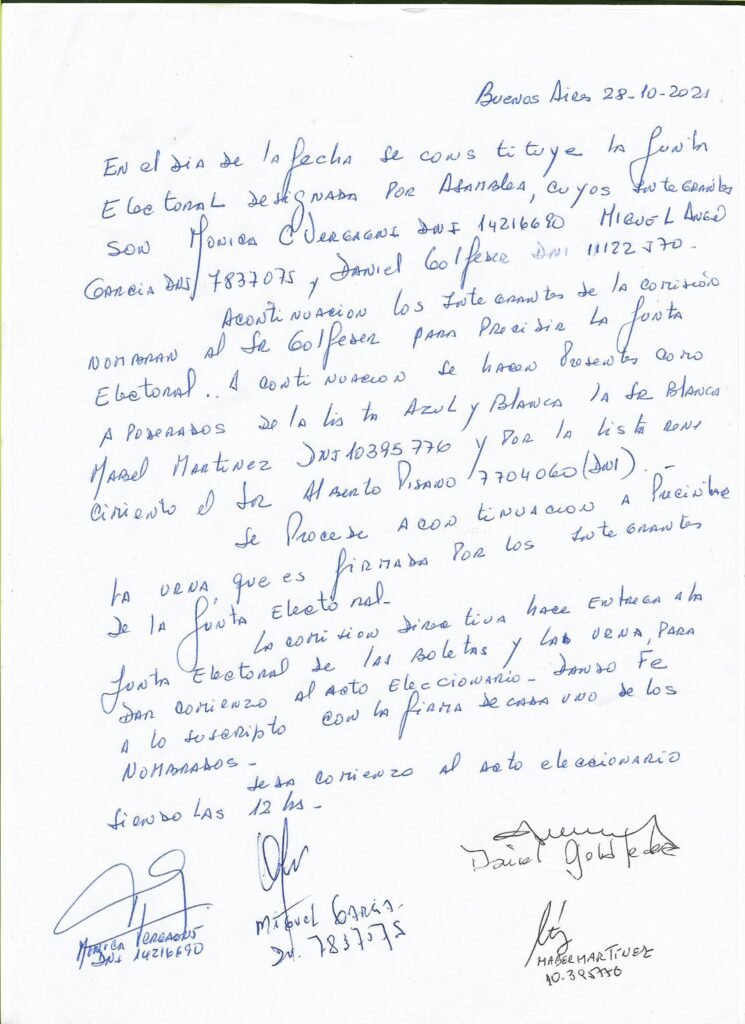 Buenos Aires 28-10-2021
En el dia de la fecha se constituye la Junta
Electoral designada por Asamblea, cuyos integrantes
son Monica C Vergagni DNI 14216690 Miguel Angel
Garcia DNI 7837075 y Daniel Golfeder DNI 11122570-
Acontinuacion los integrantes de la comisión
nombran al Sr Golfeder para Precidir la Junta
Electoral.. A continuacion se hacen presentes como
apoderados de la lista Azul y Blanca la Sr Blanca
Mabel Martinez DNI 10395776 y por la lista rena
cimiento el Sr Alberto Pisano 7704060 (DNI). -
Se procede acontinuacion a Precintar
la urna, que es firmada por los integrantes
de la Junta Electoral-
La comision directiva hace entrega a la
Junta Electoral de las boletas y la urna, para
dar comienzo al acto eleccionario- dando Fe
a lo suscripto con la firma de cada uno de los
nombrados-
Se da comienzo al acto eleccionario
siendo las 12 hs-
Daniel Goldfeder
Monica Vergagni
DNI 14216690
Miguel Garcia-
DN. 7837075
Mabel Martínez
10.395776